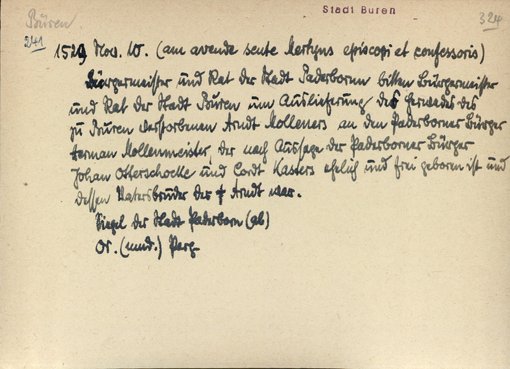 Büren
Stadt Büren
324
241
1529 Nov. 10. (am avende sente Mertyns episcopi et confessoris)
Bürgermeister und Rat der Stadt Paderborn bitten Bürgermeister
und Rat der Stadt Büren um Auslieferung des Herwedes des
zu Büren verstorbenen Arndt Molleners an den Paderborner Bürger
Herman Mollenmeister, der nach Aussage der Paderborner Bürger
Johan Otterschocke und Cordt Kasters ehelich und frei geboren ist und
dessen Vatersbruder der † Arndt war.
Siegel der Stadt Paderborn (ab)
Or. (mnd.) Perg.